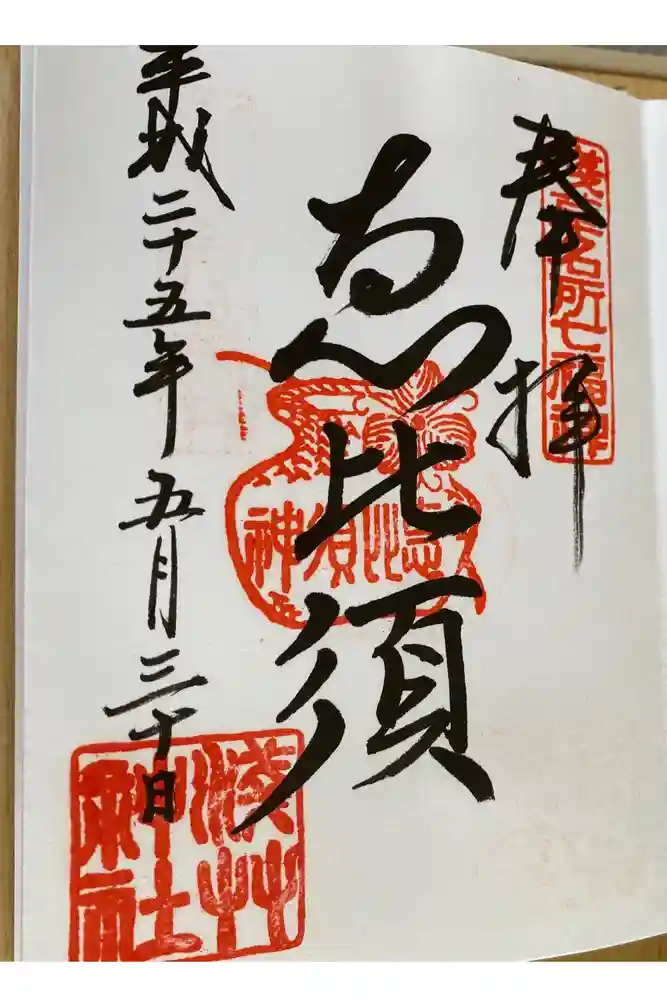 奉拝
浅草名所七福神
恵比須
恵比須神
平成二十五年五月三十日
淺艸
神社